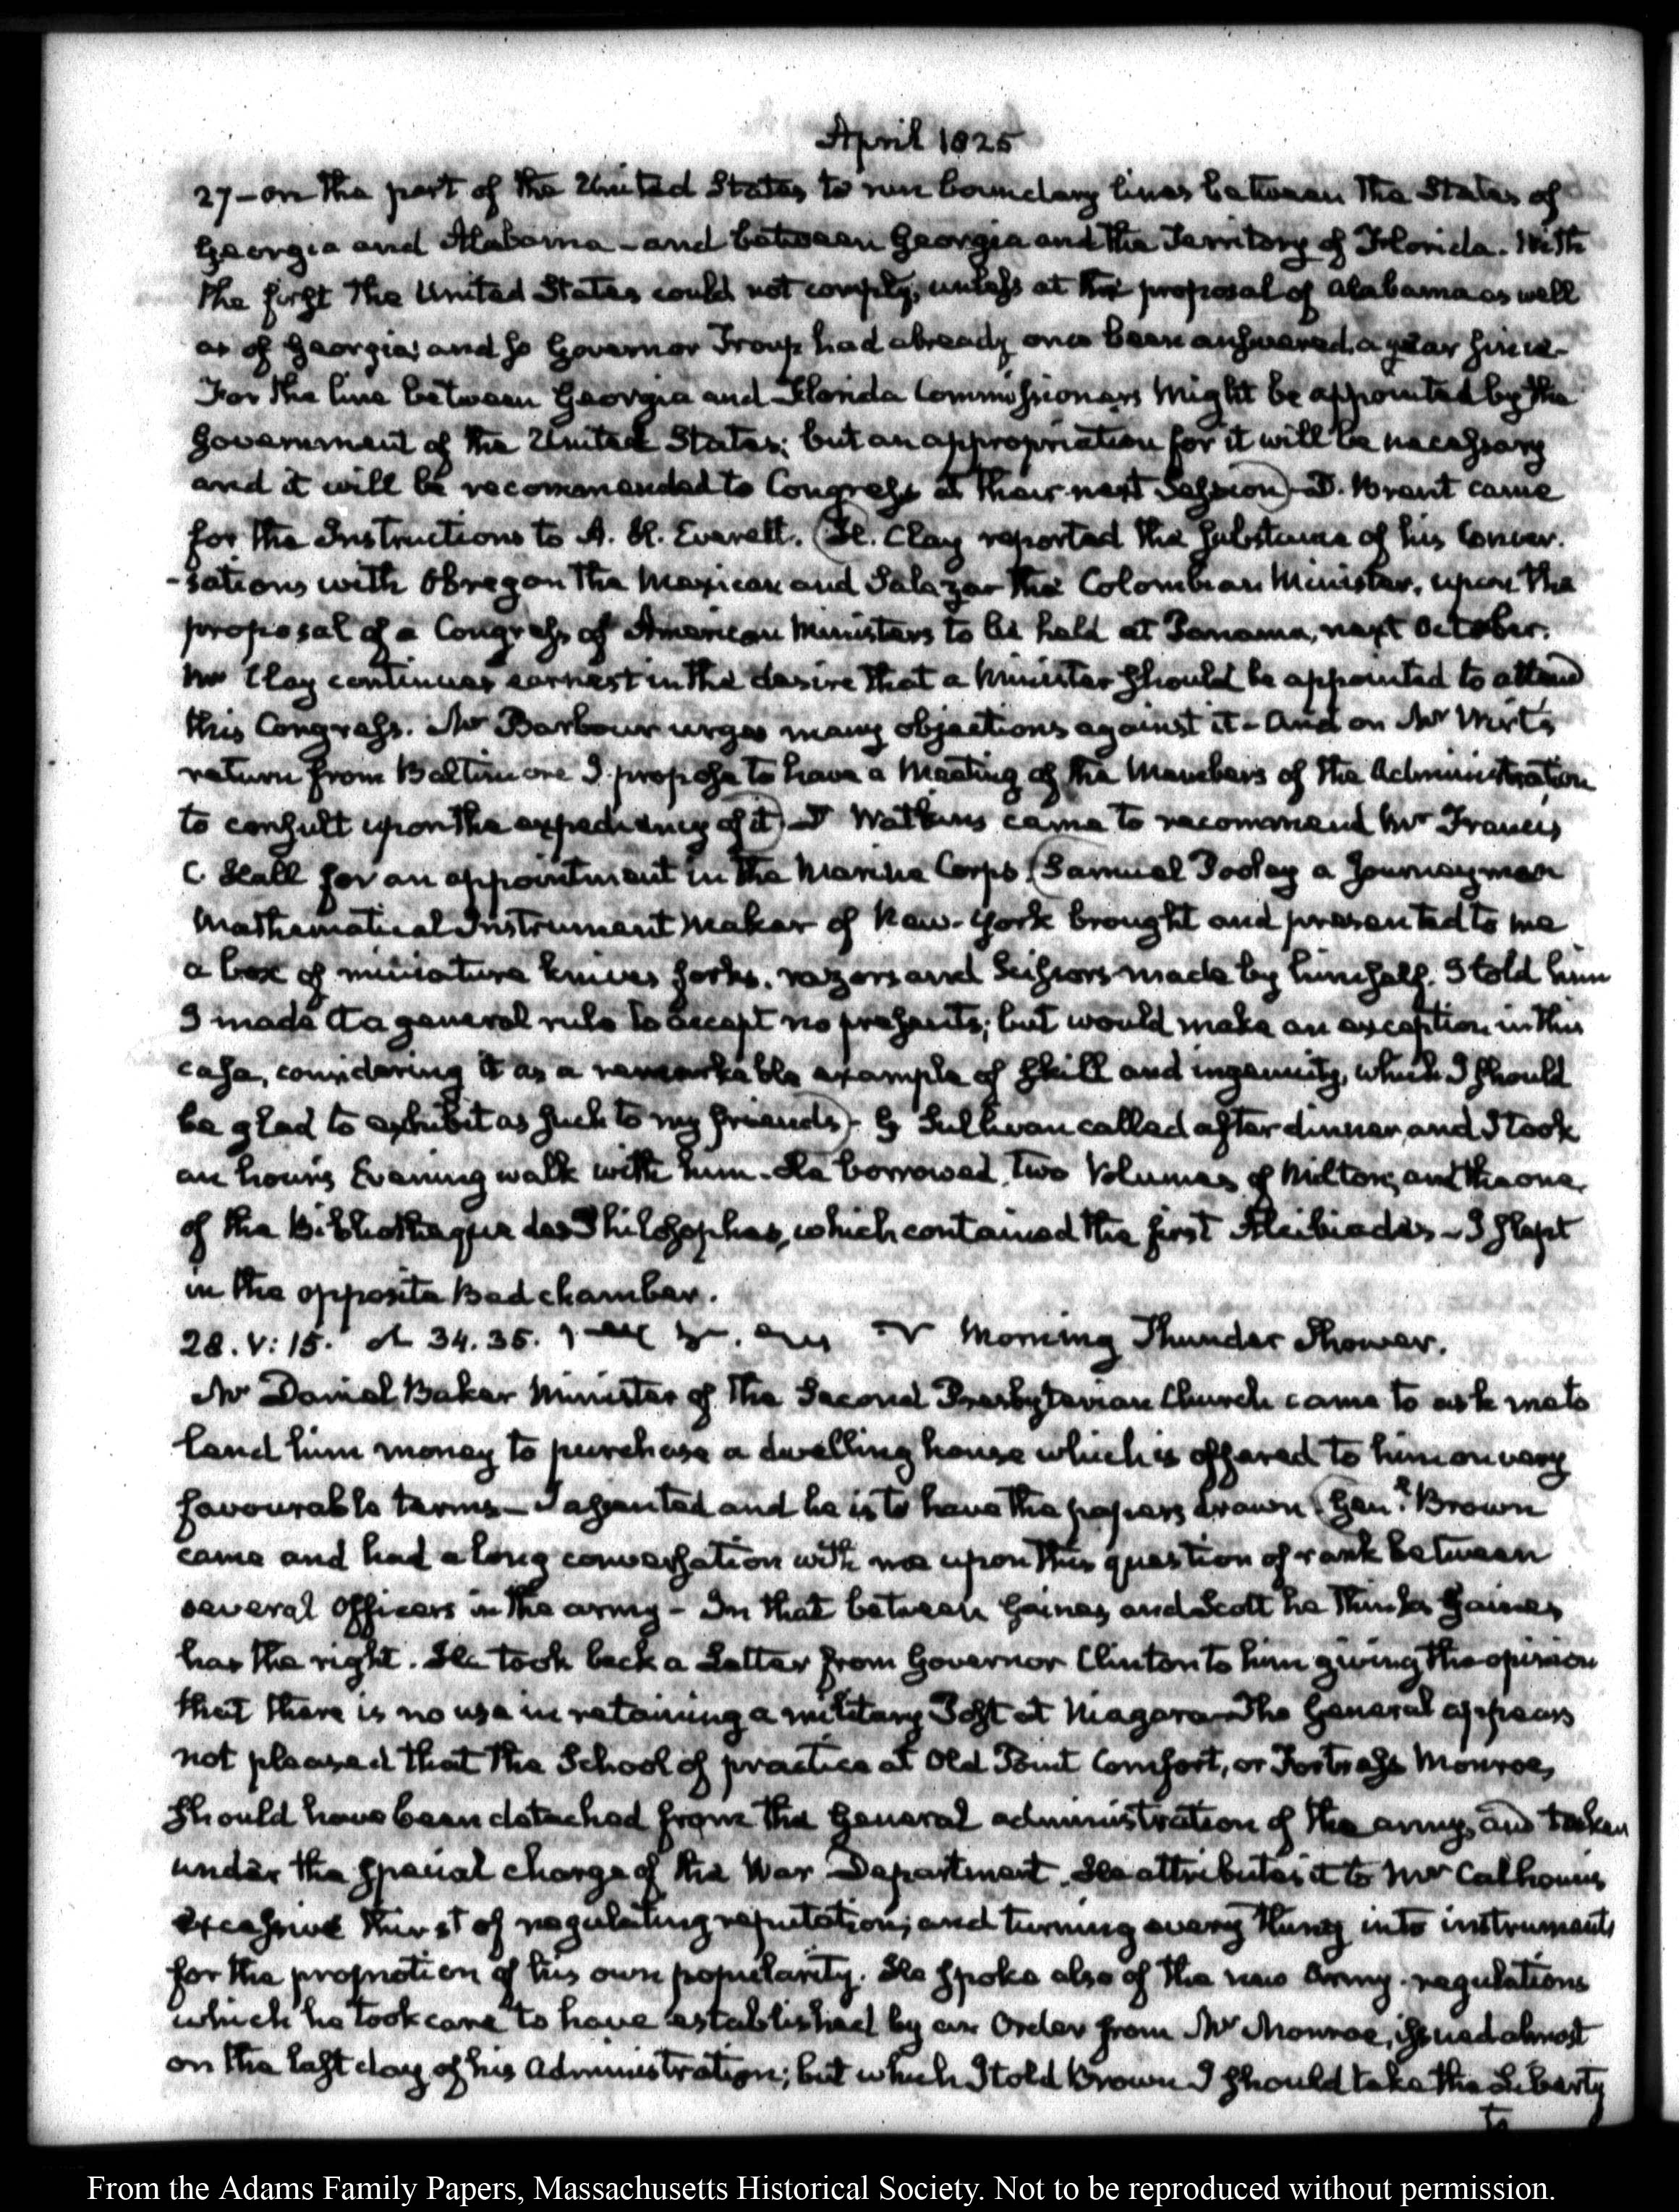 April 1825
27 - on the part of the United States to run boundary lines between the States of
Georgia and Alabama - and between Georgia and the Territory of Florida. With
the first the United States could not comply, unless at the proposal of Alabama as well
as of Georgia; and so Governor Troup had already once been answered, a year since.
For the line between Georgia and Florida Commissioners might be appointed by the
Government of the United States; but an appropriation for it will be necessary
and it will be recommended to Congress at their next Session) - D. Brent came
for the Instructions to A. H. Everett. (H. Clay reported the substance of his Conver-
-sations with Obregon the Mexican and Salazar the Colombian Minister, upon the
proposal of a Congress of American Ministers to be held at Panama, next October.
Mr Clay continues earnest in the desire that a Minister should be appointed to attend
this Congress. Mr Barbour urges many objections against it - And on Mr Wirt's
return from Baltimore I propose to have a Meeting of the Members of the Administration
to consult upon the expediency of it) - T Watkins came to recommend Mr Francis
C. Hall for an appointment in the Marine Corps (Samuel Pooley a Journeyman
Mathematical Instrument Maker of New-York brought and presented to me
a box of miniature knives forks, razors and Scissors made by himself. I told him
I made it a general rule to accept no presents; but would make an exception in this
case, considering it as a remarkable example of skill and ingenuity, which I should
be glad to exhibit as such to my friends) - G Sullivan called after dinner, and I took
an hour's Evening walk with him. He borrowed, two Volumes of Milton, and the one
of the Bibliotheque des Philosophes, which contained the first Alcibiades - I slept
in the opposite Bed chamber.
28. V: 15. 34. 35. Morning Thunder Shower.
Mr Daniel Baker Minister of the Second Presbyterian Church came to ask me to
lend him money to purchase a dwelling house which is offered to him on very
favourable terms - I assented and he is to have the papers drawn (Genl. Brown
came and had a long conversation with me upon this question of rank between
several Officers in the army - In that between Gaines and Scott he thinks Gaines
has the right. He took back a Letter from Governor Clinton to him giving the opinion
that there is no use in retaining a military Post at Niagara - The General appears
not pleased that the School of practice at Old Point Comfort, or Fortress Monroe,
should have been detached from the General administration of the army, and taken
under the special charge of the War Department. He attributes it to Mr Calhoun's
excessive thirst of regulating reputation; and turning every thing into instruments
for the promotion of his own popularity. He spoke also of the new Army regulations
which he took care to have established by an Order from Mr Monroe, issued almost
on the last day of his Administration; but which I told Brown I should take the Liberty
to
From the Adams Family Papers, Massachusetts Historical Society. Not to be reproduced without permission.